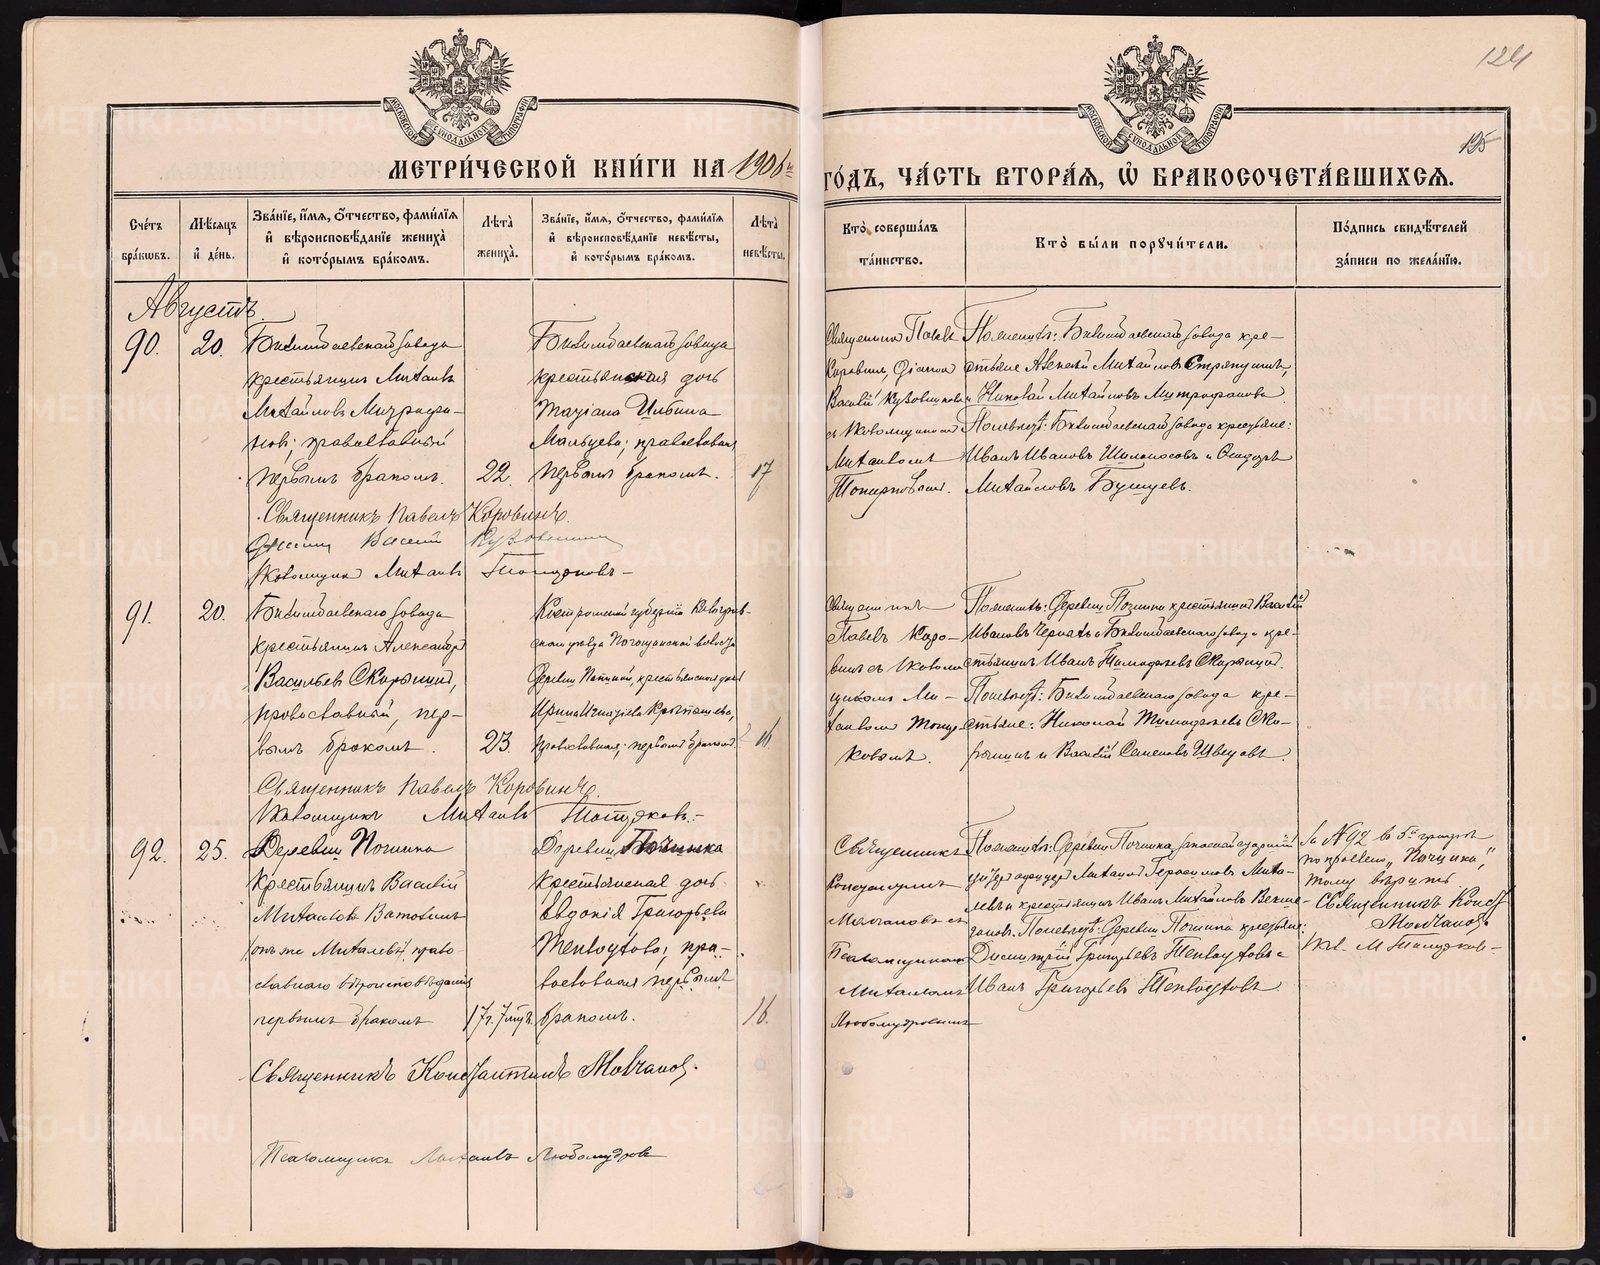 124
125
МЕТРИ́ЧЕСКОЙ КНИ́ГИ НА 1906й
ГО́ДЪ, ЧА́СТЬ ВТОРА́Я, Ѽ БРАКОСОЧЕТА́ВШИХСЯ.
Сче́тъ бра́кѡвъ.
Мѣ́сяцъ и҆ де́нь.
Зва́нїе, и҆́мя, ѻ҆́тчество, фами́лїя и҆ вѣроисповѣ́данїе жениха̀ и҆ кото́рымъ бра́комъ.
Лѣ́та жениха̀.
Зва́нїе, и҆́мя, ѻ҆́тчество, фами́лїя и҆ вѣроисповѣ́данїе невѣ́сты, и҆ кото́рымъ бра́комъ.
Лѣ́та невѣ́сты.
Кто̀ соверша́лъ та́инство.
Кто̀ бы́ли порꙋчи́тели.
По́дпись свидѣ́телей за́писи по жела́нїю.
Августъ.
90.
20.
Билимбаевскаго завода
крестьянинъ Михаилъ
Михайловъ Митрофа-
новъ; православный
первымъ бракомъ.
22.
Билимбаевскаго завода
крестьянская дочь
Татіана Ильина
Мальцева; православная
первымъ бракомъ.
17
Священникъ Павелъ
Коровинъ, Діаконъ
Василій Кузовниковъ
съ Псаломщикомъ
Михаиломъ
Топорковымъ.
По женихѣ: Билимбаевскаго завода кре-
стьяне Алексѣй Михайловъ Стряпунинъ,
и Николай Михайловъ Митрофановъ
По невѣстѣ: Билимбаевскаго завода крестьяне:
Иванъ Ивановъ Шилоносовъ и Ѳеодоръ
Михайловъ Бушуевъ.
Священникъ Павелъ Коровинъ.
Діаконъ Василій Кузовников
Псаломщикъ Михаилъ Топорковъ
91.
20.
Билимбаевскаго завода
крестьянинъ Александръ
Васильевъ Скорынинъ,
православный, пер-
вымъ бракомъ.
23.
Костромской губерніи
уѣзда волости
Деревни крестьянская дочь
Ирина
православная; первымъ бракомъ
16
Священникъ
Павелъ Коро-
винъ съ Псалом-
щикомъ Ми-
хаиломъ Топор-
ковымъ.
По женихѣ: Деревни Починка крестьянинъ Василій
Ивановъ Черныхъ и Билимбаевскаго завода кре-
стьянинъ Иванъ Тимофеевъ Скорынинъ.
По невѣстѣ: Билимбаевскаго завода кре-
стьяне: Николай Тимофеевъ Ско-
рынинъ и Василій Семеновъ Швецовъ.
Священникъ Павелъ Коровинъ.
Псаломщикъ Михаилъ Топорковъ.
92.
25.
Деревни Починка
крестьянинъ Василій
Михаиловъ
онъ же право-
славнаго вѣроисповѣданія
первымъ бракомъ
17 г. 7 мѣц.
Деревни Починка
крестьянская дочь
Евдокія Григорьева
Теплоухова, пра-
вославная первымъ
бракомъ.
16.
Священникъ
Константинъ
Молчановъ съ
Псаломщикомъ
Михаиломъ
Любомудровымъ
По женихѣ: Деревни Починка, запасный старшій
унтеръ-офицеръ Михаилъ Герасимовъ
и крестьянинъ Иванъ Михайловъ
По невѣстѣ: Деревни Починка крестьяне:
Димитрій Григорьевъ Теплоуховъ и
Иванъ Григорьевъ Теплоуховъ.
въ N 92 въ 5й графѣ
по „Починка,"
тому вѣрить
Священникъ Конст.
Молчановъ
Священникъ Константинъ Молчановъ.
Псаломщикъ Михаилъ Любомудровъ
METRIKI.GASO-URAL.RU